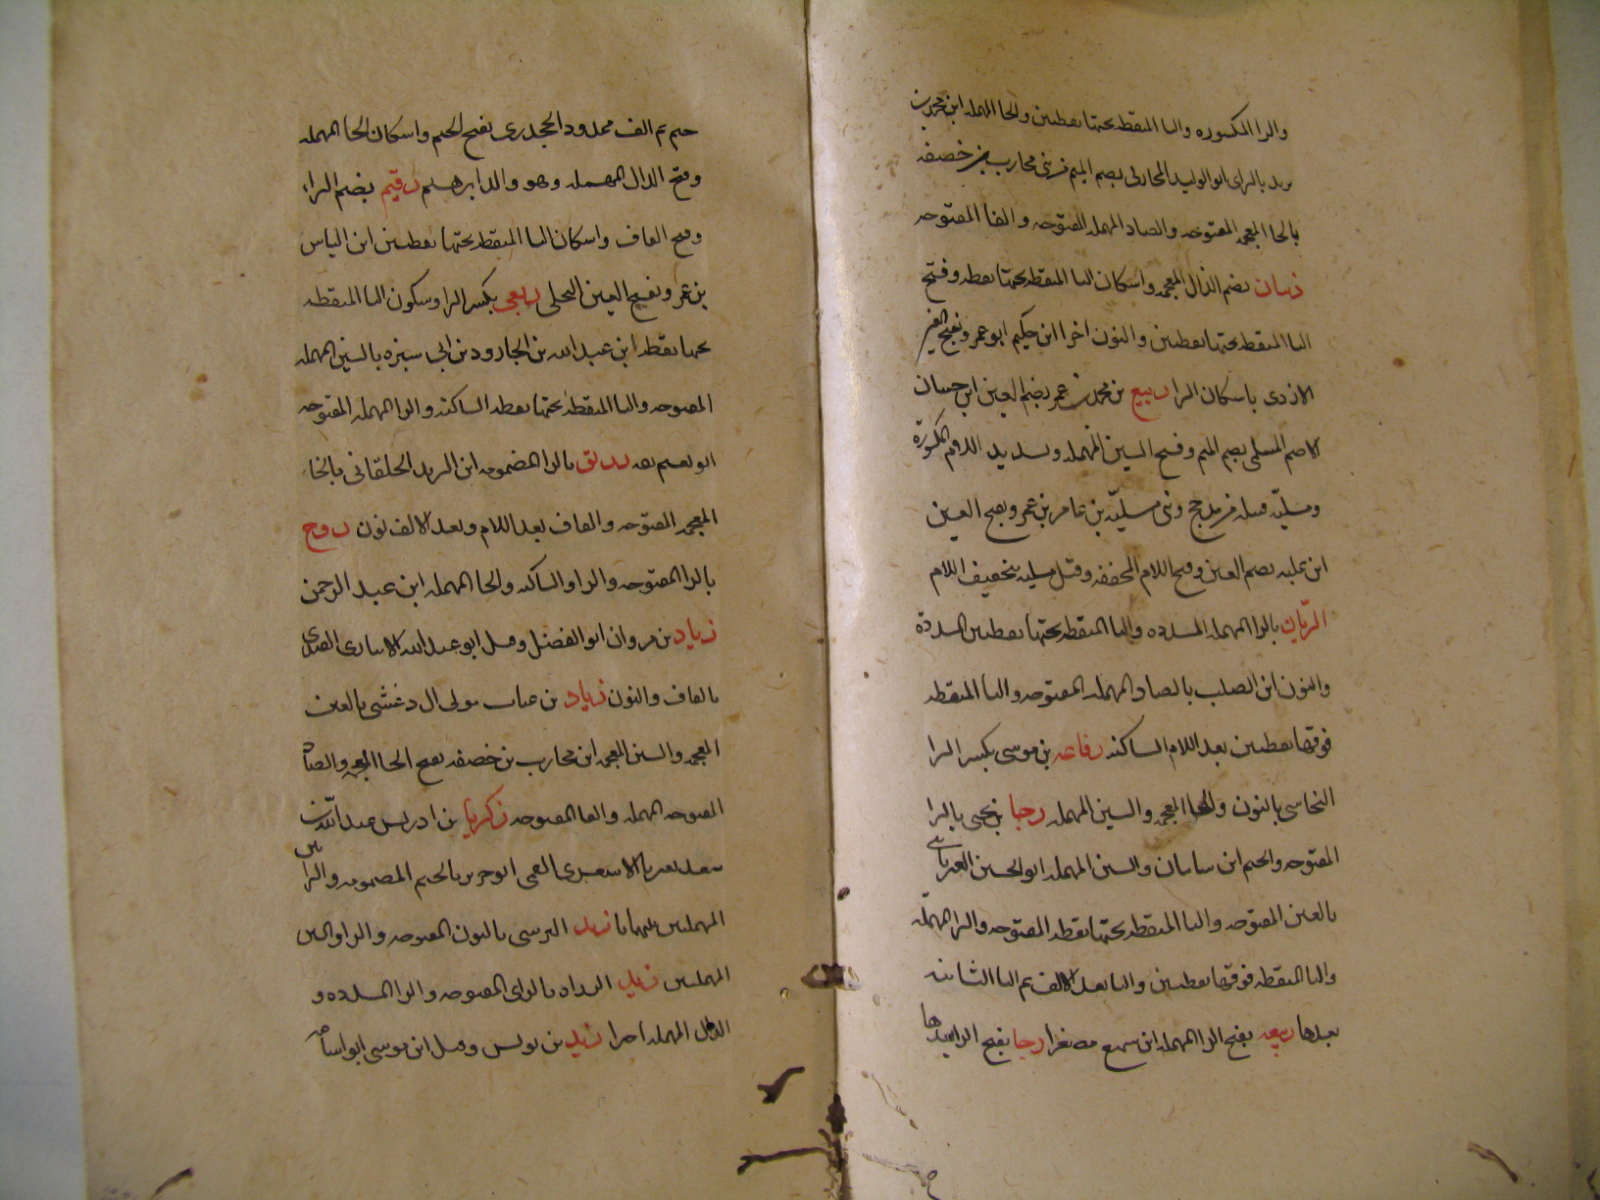 والرا المكسوره واليا المنقطه تحتها نقطتين والحا المهمله ابن محمد بن
يزيد بالزاى ابو الوليد المحاربى بضم الميم من بنى محارب بن خصفه
بالخا المعجمه المفتوحه والصاد المهمله المفتوحه والفا المفتوحه
ذبيان بضم الذال المعجمه واسكان البا المنقطه تحتها نقطه وفتح
اليا المنقطه تحتها نقطتين والنون اخرا ابن حكيم ابو عمرو بفتح العين
الازدى باسكان الزا ربيع بن محمد بن عمر بضم العين ابن حسان
الاصم المسلى بضم الميم وفتح السين المهمله وتشديد اللام المكسورة
ومسليّه قبيله من مذحج وبنى مسليّه بن عامر بن عمرو بفتح العين
ابن عليه بضم العين وفتح اللام المخففه وقيل مسليه بتخفيف اللام
الريّان بالرا المهمله المشدده واليا المنقطه تحتها نقطتين المشددة
والنون ابن الصلت بالصاد المهمله المفتوحه والتا المنقطه
فوقها نقطتين بعد اللام الساكنه رفاعه بن موسى بكسر الرا
النخاسى بالنون والخا المعجمه والسين المهمله رجا بن يحيى بالرا
المفتوحه والجيم ابن سامان والسين المهمله ابو الحسين العبرتائى
بالعين المفتوحه والبا المنقطه تحتها نقطه المفتوحه والرا المهمله
والتا المنقطه فوقها نقطتين واليا بعد الالف ثم اليا الثانيه
بعدها ربيعه بفتح الرا المهمله ابن سميع مصغرا رجا بفتح الرا بعدها
جيم ثم الف ممدود الجحدرى بفتح الجيم واسكان الحا المهمله
وفتح الدال المهمله وهو والد ابرهيم رقيم بضم الراء
وفتح القاف واسكان اليا المنقطه تحتها نقطتين ابن الياس
بن عمرو بفتح العين البجلى ربعى بكسر الرا وسكون البا المنقطه
تحتها نقطه ابن عبد الله بن الجارود بن ابى سبره بالسين المهمله
المفتوحه والبا المنقطه تحتها نقطه الساكنه والرا المهمله المفتوحه
ابو نعيم ثقه رزيق بالرا المضمومه ابن الزبير الخلقانى بالخاء
المعجمه المفتوحه والقاف بعد اللام وبعد الالف نون روح
بالرا المفتوحه والواو الساكنه والحا المهمله ابن عبد الرحمن
زياد بن مروان ابو الفضل وقيل ابو عبد الله الانبارى القندى
بالقاف والنون زياد بن عتاب مولى ال دغشى بالغين
المعجمه والشين المعجمه ابن محارب بن خصفه بفتح الخا المعجمه والصاد
المفتوحه المهمله والفا المفتوحه زكريا بن ادريس عبد الله بن
سعد بن الاشعرى القمى ابو جرير بالجيم المضمومه والراين
المهملتين بينهما يا زيد النرسى بالنون المفتوحه والرا والسين
المهملتين زيد الزراد بالزاى المفتوحه والرا المشدده و
الدال المهمله اخرا زيد بن يونس وقيل ابن موسى ابو اسامه